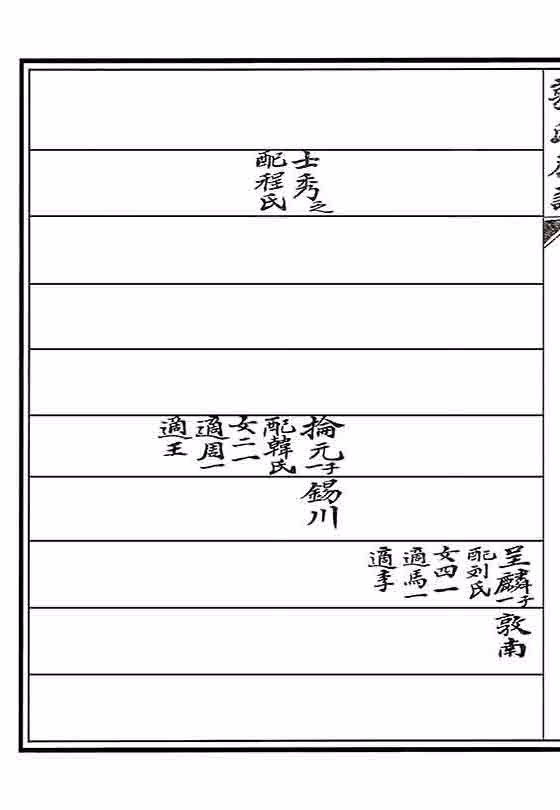 士秀之
配程氏
掄元一子
配韓氏
女二一
適周一
適王
錫川
呈麟一子
配刘氏
女四一
適馬一
適李
敦南